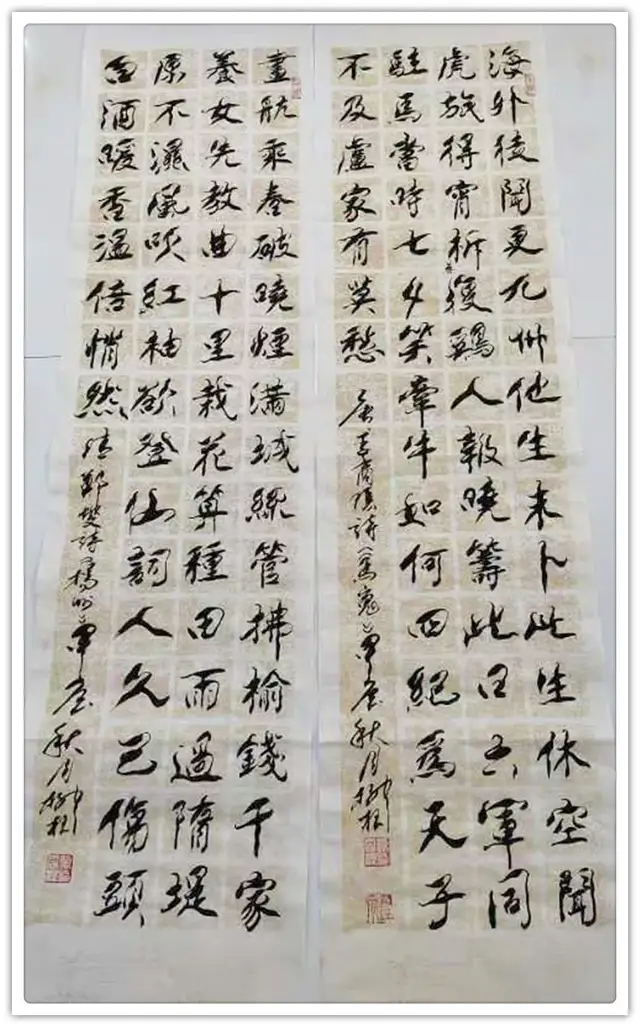 海外徒聞更九州他生未卜此生休空聞
虎旅得宵柝復鷄人報曉籌此日六軍同
駐馬當時七夕笑牽牛如何四紀爲天子
不及盧家有莫愁 唐李商隱詩馬嵬 秋月
畫舫乘春破曉煙滿城絲管拂榆錢千家
養女先教曲十里栽花算種田雨過隋堤
原不濕風吹紅袖欲登仙詞人久已傷頭
白酒暖香溫倍悄然 清鄭燮詩揚州 秋月